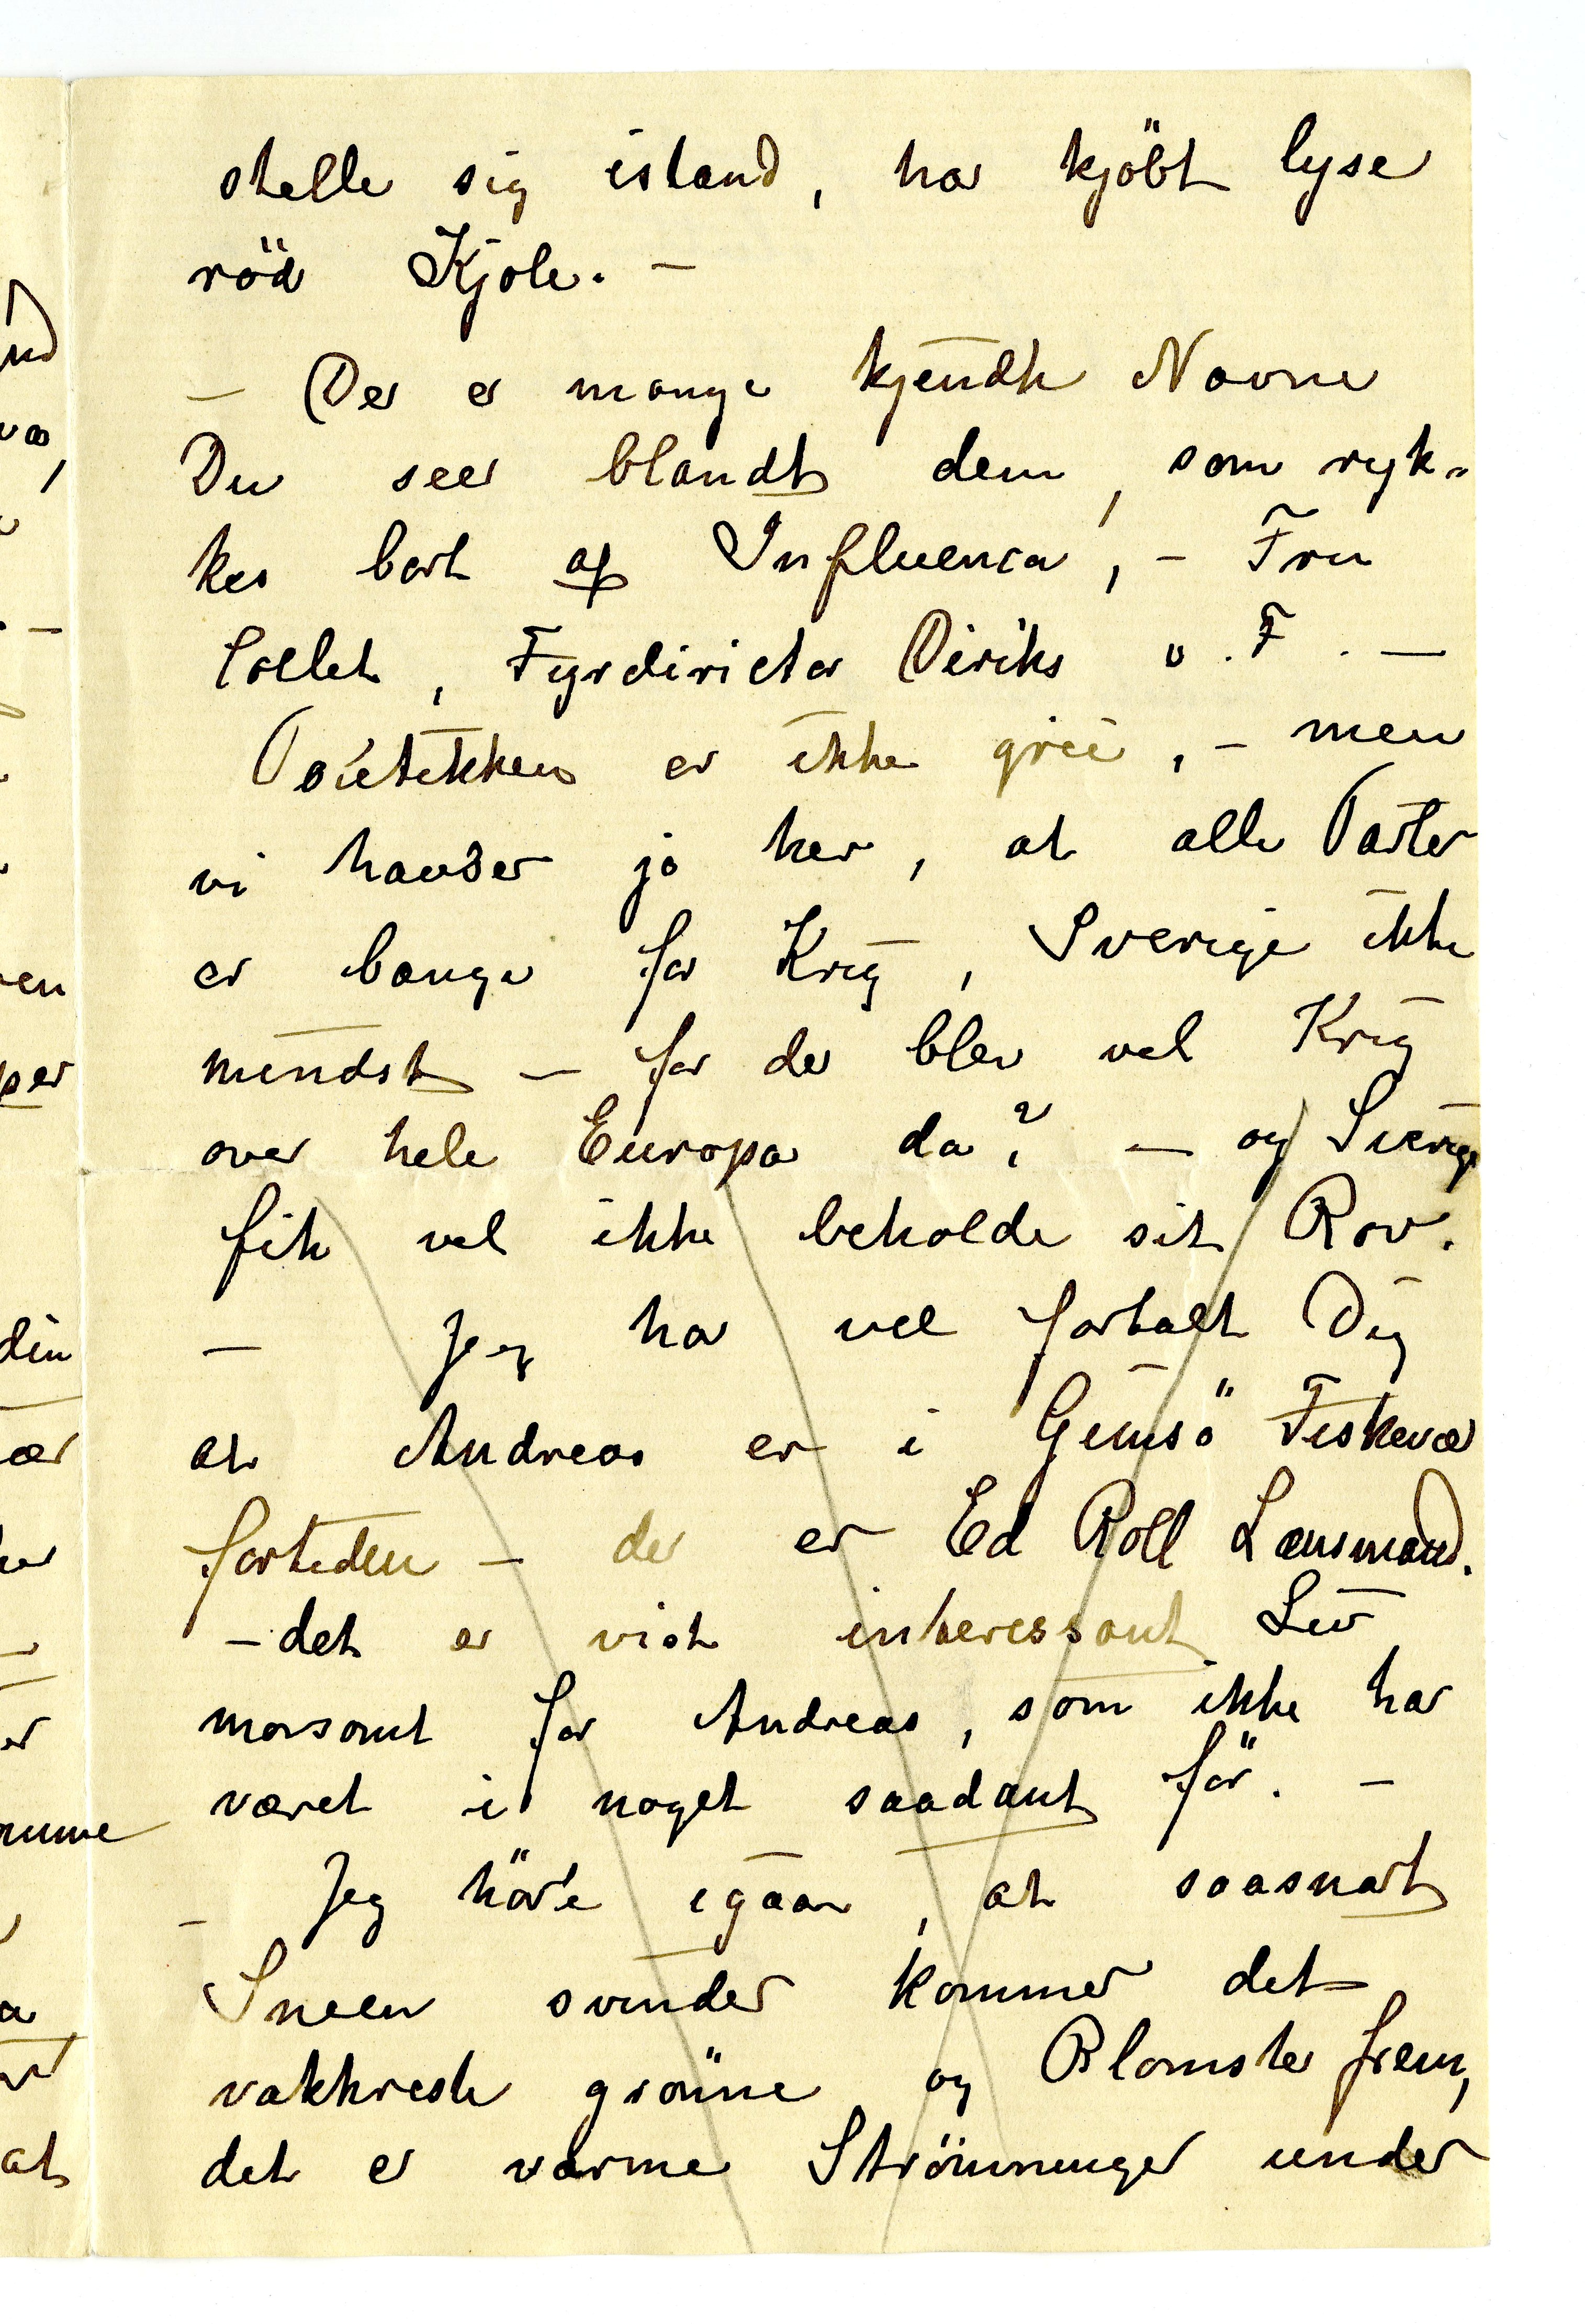 stelle sig istand, har kjöbt lyse
röd Kjole. –
– Der er mange kjendte Navne
Du seer blandt dem, som ryk-
kes bort af Influenca, – Fru
Collet, Fyrdirictør Diriks o.F. –
Politikken er ikke grei, – men
vi haaber jo her, at alle Parter
er bange for Krig, Sverige ikke
mindst – for der blev vel Krig
over hele Europa da? – og Sverige
fik vel ikke beholde sit Rov.
– Jeg har vel fortalt Dig
at Andreas er i Gimsö Fiskevær
fortiden – der er Ed Roll Lænsmand.
– det er vist interessant Liv
morsomt for Andreas, som ikke har
været i noget saadant för. –
– Jeg hörte igaar, at saasnart
Sneen svinder kommer det
vakkreste grönne og Blomster frem,
det er varme Strömninger under
nd
en
per
din
ær
er
at